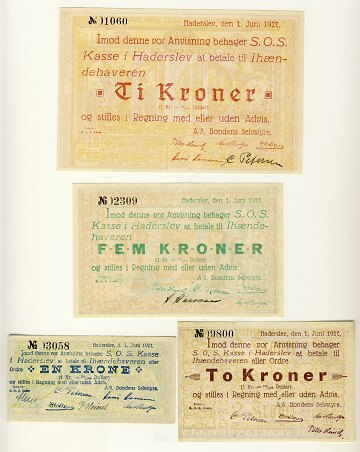 № 01060
Haderslev, den 1. Juni 1927.
Imod denne vor Anvisning behager S.O.S.
Kasse i Haderslev at betale til Ihæn-
dehaveren
Ti Kroner
og stilles i Regning med eller uden Advis.
A.S. Bondens Selvstyre.
C. Petersen
№ 02309
Haderslev, den 1. Juni 1927.
Imod denne vor Anvisning behager S.O.S.
Kasse i Haderslev at betale til Ihænde-
haveren
FEM KRONER
og stilles i Regning med eller uden Advis.
A.S. Bondens Selvstyre.
№ 03058
Haderslev, d. 1. Juni 1927.
Imod denne vor Anvisning behager S. O. S. Kasse
i Haderslev at betale til Ihændehaveren eller
Ordre
EN KRONE
og stilles i Regning med eller uden Advis.
A/S. Bondens Selvstyre.
C. Petersen
№ 09800
Haderslev, den 1. Juni 1927.
Imod denne vor Anvisning behager
S. O. S. Kasse i Haderslev at betale til
Ihændehaveren eller Ordre
To Kroner
og stilles i Regning med eller uden Advis.
A.S. Bondens Selvstyre.
C. Petersen